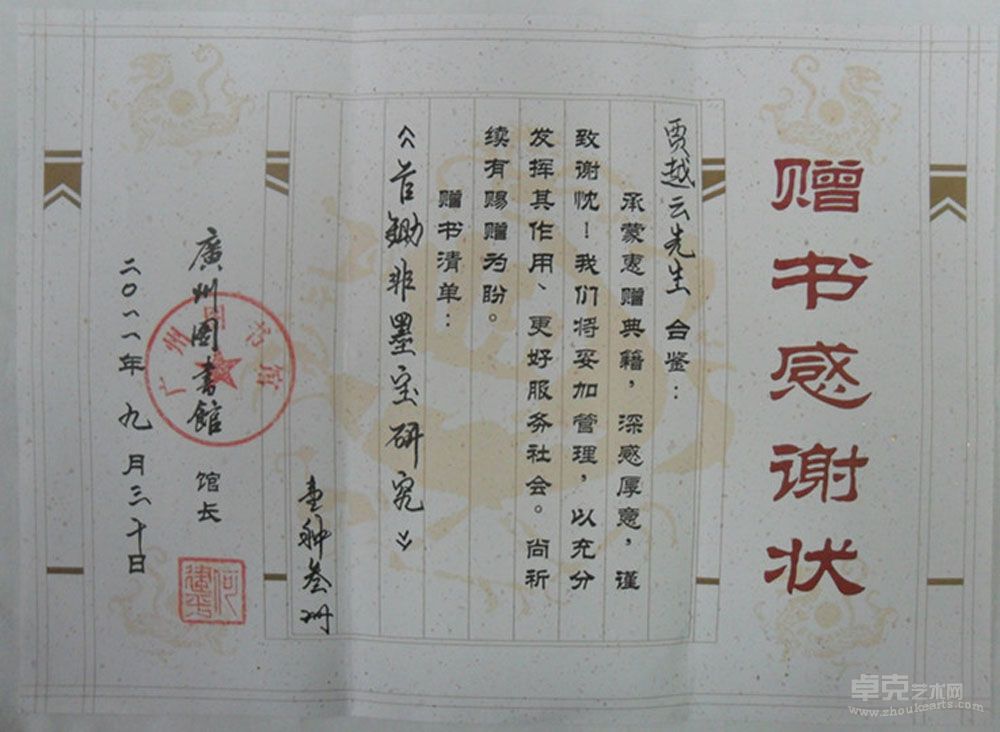 赠书感谢状
贾越云先生 台鉴：
承蒙惠赠典籍，深感厚意，谨
致谢忱！我们将妥加管理，以充分
发挥其作用、更好服务社会。尚祈
续有赐赠为盼。
赠书清单：
非墨宝研究》
壹种叁册
廣州图書館 馆长
广州图书馆
二〇一一年九月三十日
卓克艺术网
www.zhoukearts.com